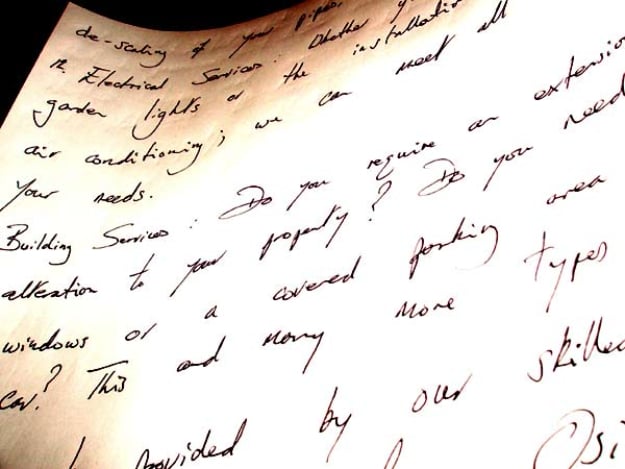 de-scaling of your pipes
Electrical Services: Whether
garden lights or the installation
air conditioning; we can meet all
your needs.
Building Services: Do you require an extension
alteration to your property? Do you need
windows or a covered parking area
car? This and many more types
provided by our skilled